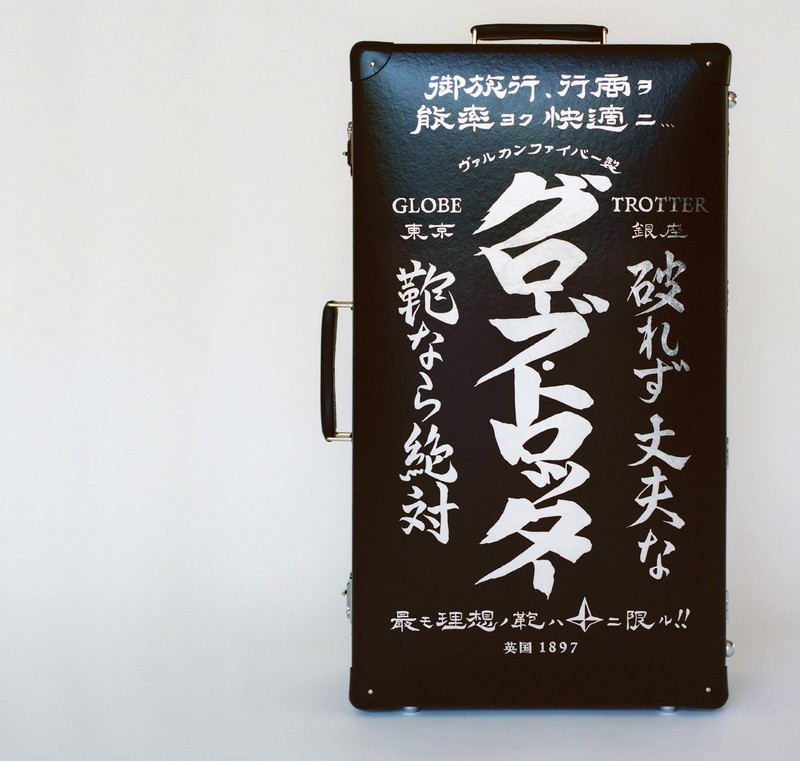 御旅行、行商ヲ
能率ヨク快適ニ…
ヴァルカンファイバー製
GLOBE TROTTER
東京 銀座
破れず丈夫な
グローブ・トロッター
鞄なら絶対
最モ理想ノ鞄ハニ限ル!!
英国 1897